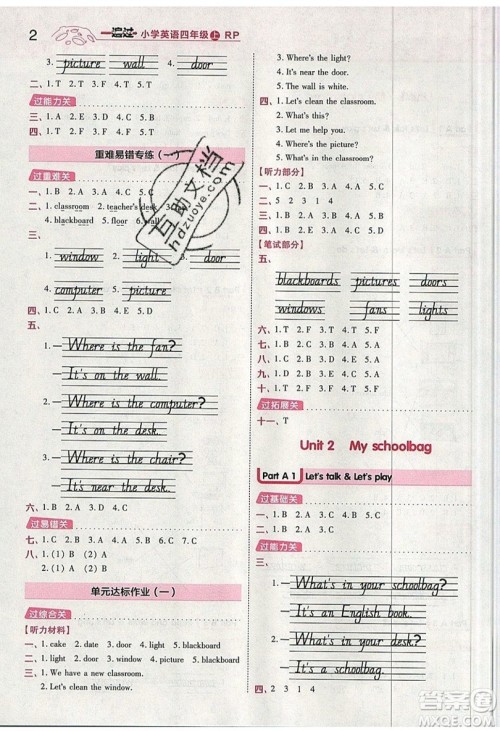 2 一遍过 小学英语四年级上 RP
3. picture wall 4. door
二、1. T 2. F 3. T 4. F 5. T
过能力关
三、1. A 2. E 3. D 4. B 5. C
四、1. F 2. T 3. T 4. F
重难易错专练(一)
过重难关
一、1. B 2. A 3. B 4. C 5. A
二、1. classroom 2. teacher's desk 3. light
4. blackboard 5. floor 6. wall
三、1. window 2. light 3. door
4. computer 5. picture
四、1. B 2. A 3. B 4. A 5. C
五、
1. —Where is the fan?
—It's on the wall.
2. —Where is the computer?
—It's on the desk.
3. —Where is the chair?
—It's near the desk.
六、1. C 2. B 3. E 4. D 5. A
过易错关
七、1. C 2. B 3. A 4. B 5. C
八、1. (1) B (2) A 2. (1) A (2) B
单元达标作业(一)
过综合关
【听力材料】
一、1. cake 2. date 3. light 4. blackboard
二、1. light 2. door 3. window 4. picture
5. blackboard
三、1. We have a new classroom.
2. Let's clean the window.
3. Where's the light?
4. It's near the door.
5. The wall is white.
四、1. Let's clean the classroom.
2. What's this?
3. Let me help you.
4. Where's the picture?
5. What's in the classroom?
【听力部分】
一、1. B 2. A 3. A 4. B
二、5 2 3 1 4
三、1. T 2. F 3. T 4. T 5. F
四、1. B 2. A 3. B 4. A 5. B
【笔试部分】
五、
blackboards pictures doors
windows fans lights
六、1. T 2. F 3. F 4. T 5. F
七、1. B 2. B 3. A 4. C 5. A
八、1. B 2. D 3. A 4. E 5. C
九、1. B 2. C 3. A 4. D
十、1. T 2. F 3. F 4. T 5. F
过拓展关
十一、T
Unit 2 My schoolbag
Part A 1 Let's talk & Let's play
过基础关
一、1. B 2. C 3. A 4. D
二、1. B 2. A 3. B 4. C 5. A
过能力关
三、
1. —What's in your schoolbag?
—It's an English book.
2. —What's in your hand?
—It's a schoolbag.
四、2 3 1 4
互助文档
hdzuoye.com
答案圈
MXQE.COM